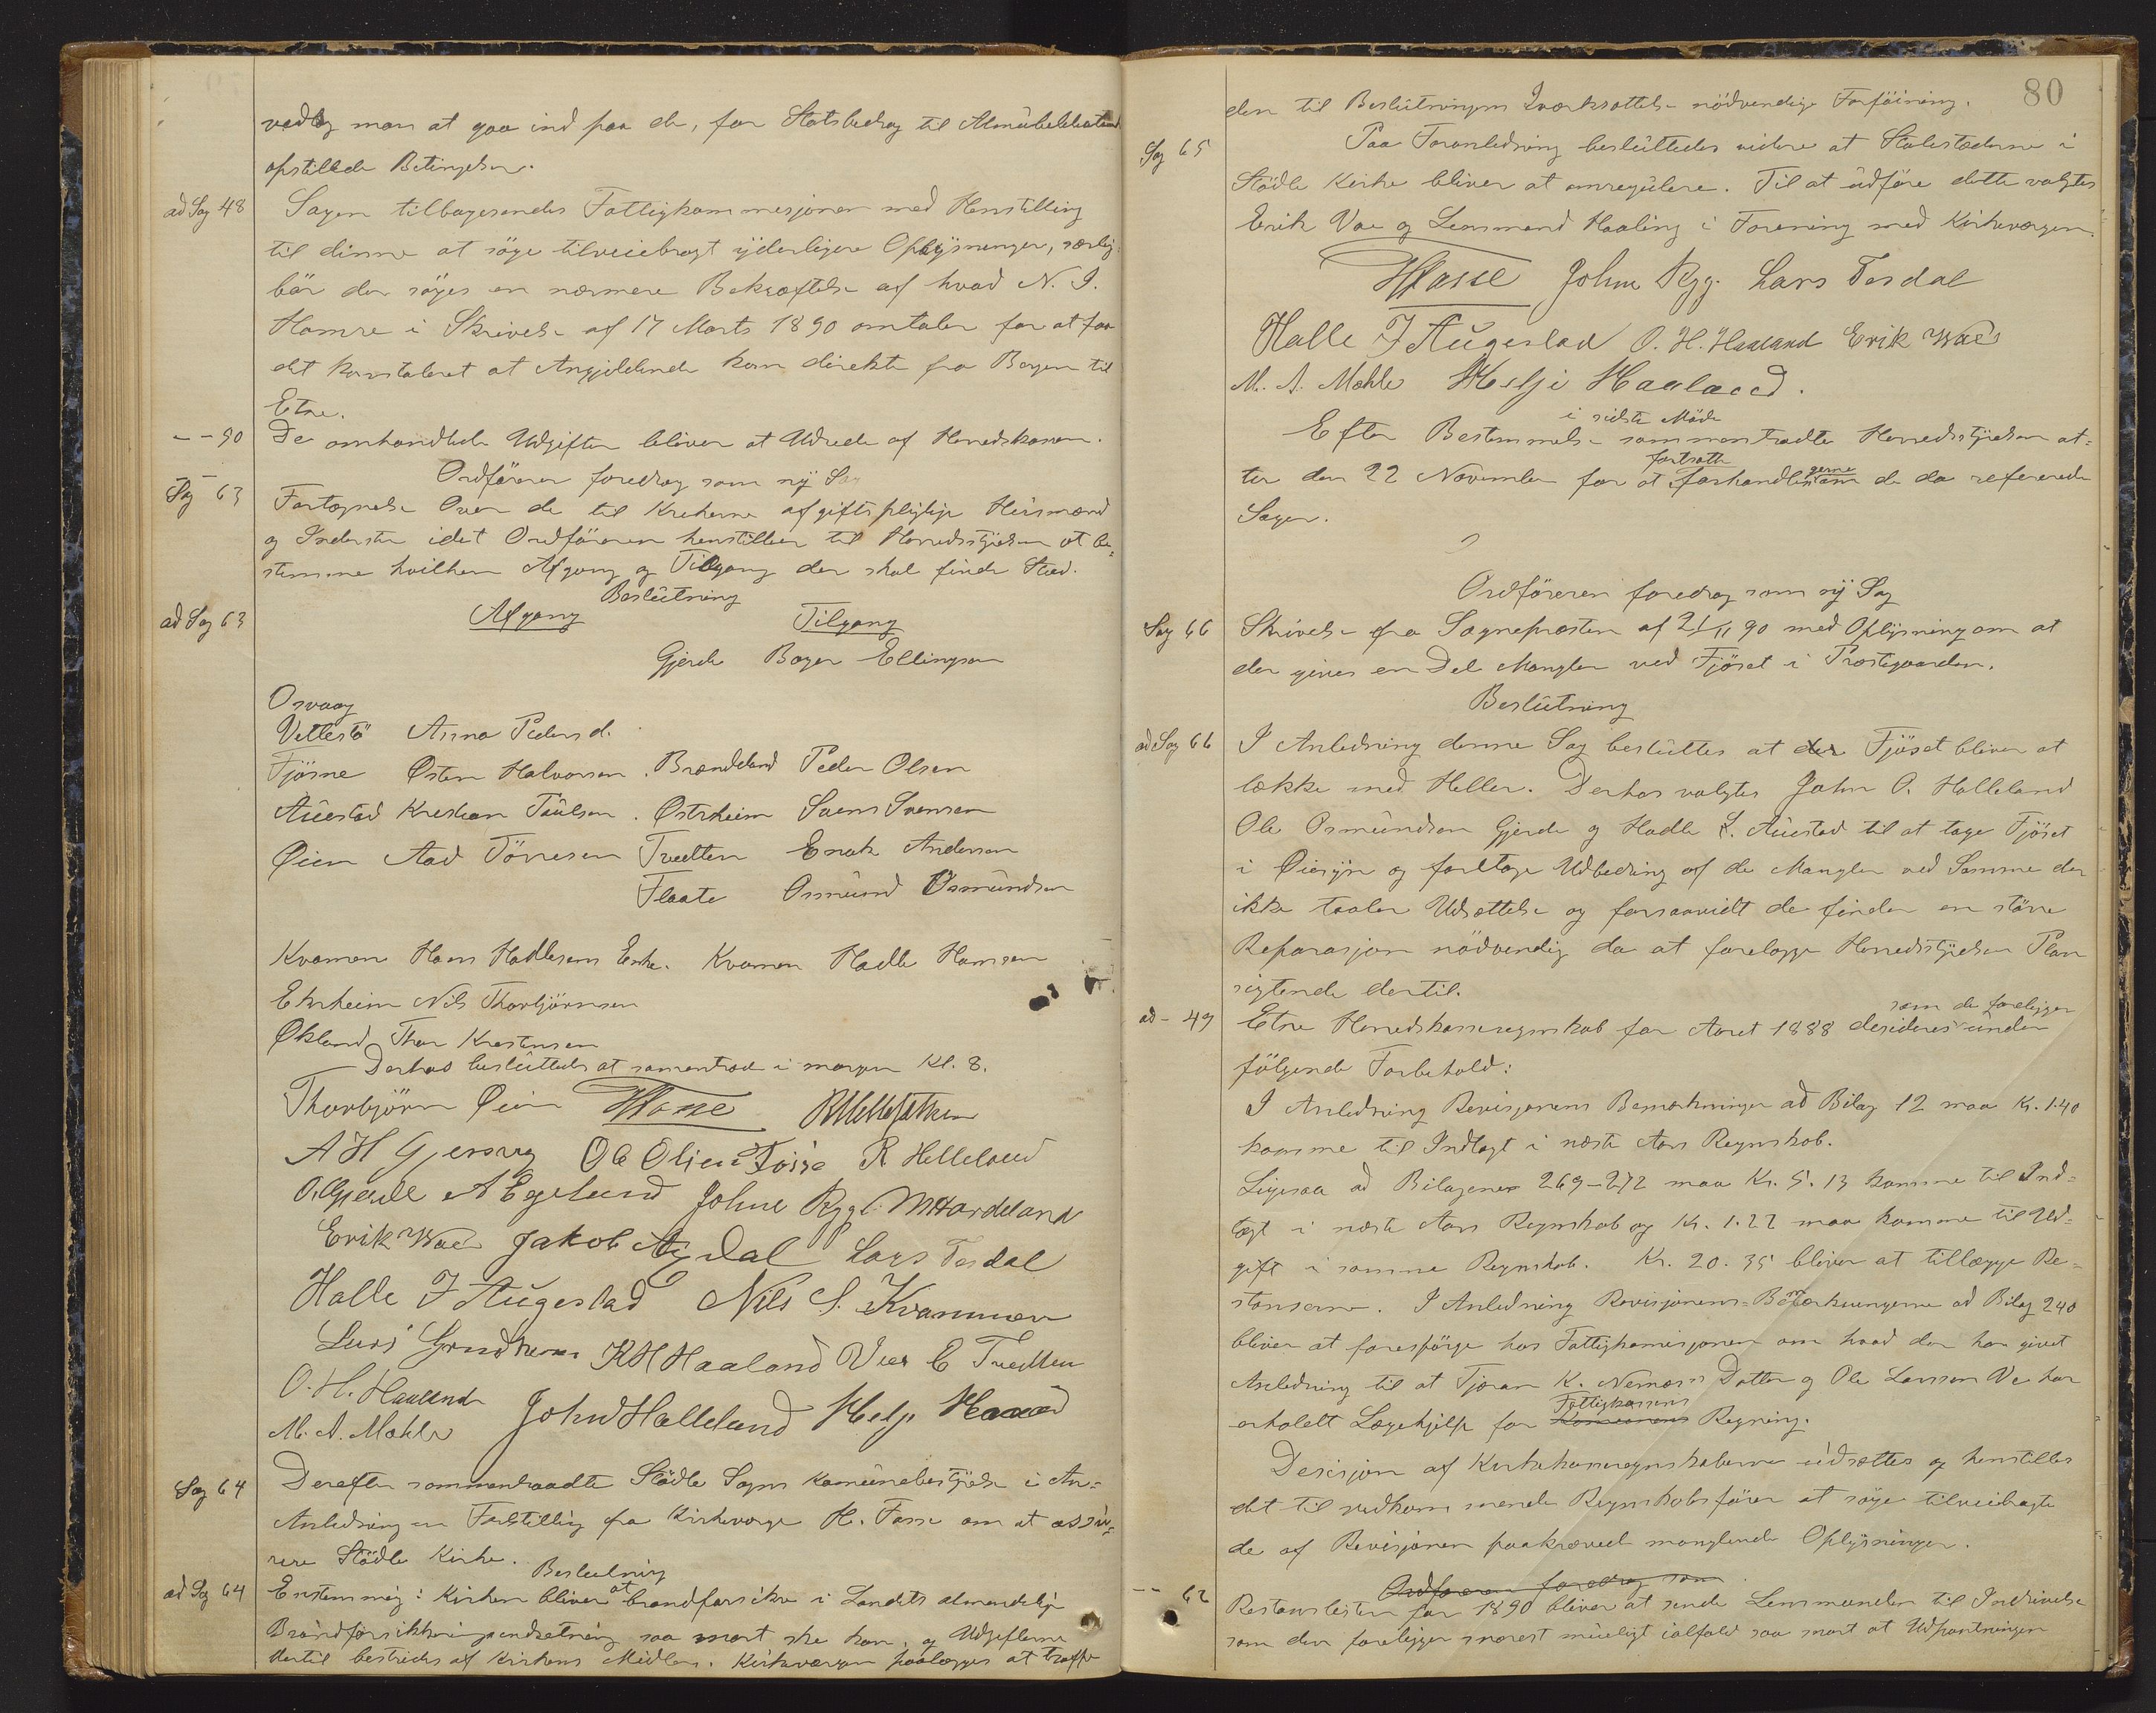 vedtog man at gaa ind paa de, for Statsbedrag til Almuebibliotek
opstillede Betingelser.
ad Sag 48 Sagen tilbagesendes Fattigkommisjonen med Henstilling
til dinne at söge tilveiebragt yderligere Oplysninger, særlig
bör der söges en nærmere Bekræftelse af hvad N. I.
Hamre i Skrivelse af 17 Marts 1890 omtaler for at faa
det konstateret at Angjeldende kom direkte fra Bergen til
Etne.
- - 50 De omhandlede Udgifter bliver at Udrede af Heredskassen.
Ordföreren foredrog som ny Sag
Sag 63 Fortegnelse Over de til Kirkerne afgiftspligtige Husmænd
og Inderster idet Ordföreren henstillede til Herredsstyrelsen at be-
stemme hvilken Afgang og Tilgang der skal finde Sted.
Beslutning
ad Sag 63 Afgang Tilgang
Gjerde Boyer Ellingsen
Osvaag
Vettestö Anna Pedersd.
Fjösne Østen Halvorsen . Brændeland Peder Olsen
Auestad Kristian Paulsen . Østrheim Svens Svensen
Øien Aad Törresen Tvedten Enok Andersen
Flaate Osmund Osmundsen
Kvamen Hans Hadlesens Enke. Kvamen Hadle Hansen
Etneheim Nils Thorbjörnsen
Økland Thor Kristensen
Derhos besluttedes at samentræde i morgen Kl. 8.
Thorbjörn Øien HFasse
A H Gjersvig Ole Olsen Töisse R Helleland
O. Gjerde A Egelund Johne Rygg. M Hardeland
Erik Wae Jakob Aydal Lars Tesdal
Halle J Augestad Nils S. Kvammen
Lars Grindheim K H Haaland Vier E Tvedten
O. H. Haaland
M. A. Mæhle John Halleland Helje Haaland
Sag 64 Derefter sammentraadte Stödle Sogns Komunebestyrelse i An-
Anledning en Forestilling fra Kirkeverge H. Fasse om at assu-
rere Stödle Kirke.
Beslutning
ad Sag 64 Enstemmig: Kirken bliver at brandforsikre i Landets almindelige
Brandforsikkringsindretning saa snart ske kan, og Udgifterne
dertil bestrides af Kirkens Midler. Kirkevergen paalægges at træffe
80
den til Beslutningens Iværksættelse nödvendige Forföining.
Sag 65 Paa Foranledning besluttedes videre at Stolestaderne i
Stödle Kirke bliver at omregulere. Til at udföre dette valgtes
Erik Vae og Lensmand Haaling i Forening med Kirkevergen.
HFasse Johne Rygg. Lars Tesdal
Halle J Augestad O. H. Haaland Erik Wae
M. A. Mæhle Helje Haaland.
i sidste Möde
Efter Bestemmelse sammentraadte Herredsstyrelsen at-
fortsætte gerne
ter den 22 November for at forhandlingerne de da refererede
Sager.
Ordföreren foredrog som ny Sag
Sag 66 Skrivelse fra Sognepresten af 21/11 90 med Oplysning om at
der gives en Del Mangler ved Fjöset i Præstegaarden.
Beslutning
ad Sag 66 I Anledning denne Sag besluttes at der Fjöset bliver at
tække med Heller. Derhos valgtes John O. Halleland
Ole Osmundsen Gjerde og Hadle J. Auestad til at tage Fjöset
i Øiesyn og foretage Udbedring af de Mangler ved Samme der
ikke taaler Udsættelse og forsaavidt de finder en större
Reparasjon nödvendig da at forelægge Herredsstyrelsen Plan
sigtende dertil.
som de foreligger
ad - 49 Etne Heredskasseregnskab for Aaret 1888 desideres under
fölgende Forbehold:
I Anledning Revisjonens Bemærkninger ad Bilag 12 maa Kr. 1.40
komme til Indtægt i næste Aars Regnskab.
Ligesaa ad Bilagene 269-272 maa Kr. 5.13 komme til Ind-
tægt i næste Aars Regnskab og Kr. 1.22 maa komme til Ud-
gift i samme Regnskab. Kr. 20.35 bliver at tillægge Re-
stanserne. I Anledning Revisjonens Bemærkningerne ad Bilag 240
bliver at forespörge hos Fattigkomisjonen om hvad der har givet
Anledning til at Tjæran K. Datter og Ole Larsson Ve har
Fattigkassens
erholdt Lægehjelp for Komisionens Regning.
Desisjon af Kirkekasseregnskaberne udsættes og henstilles
det til vedkommende Regnskabsförer at söge tilveiebragte
de af Revisjonen paakrævede manglende Oplysninger.
Ordföreren foredrog som
- - 62 Restanslisten for 1890 bliver at sende Lensmanden til Inddrivelse
som den foreligger snarest mueligt ialfald saa snart at Udpantningen